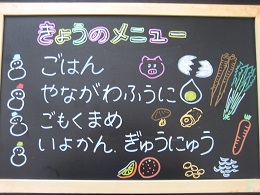 きょうのメニュー
ごはん
やながわふうに
ごもくまめ
いよかん.ぎゅうにゅう